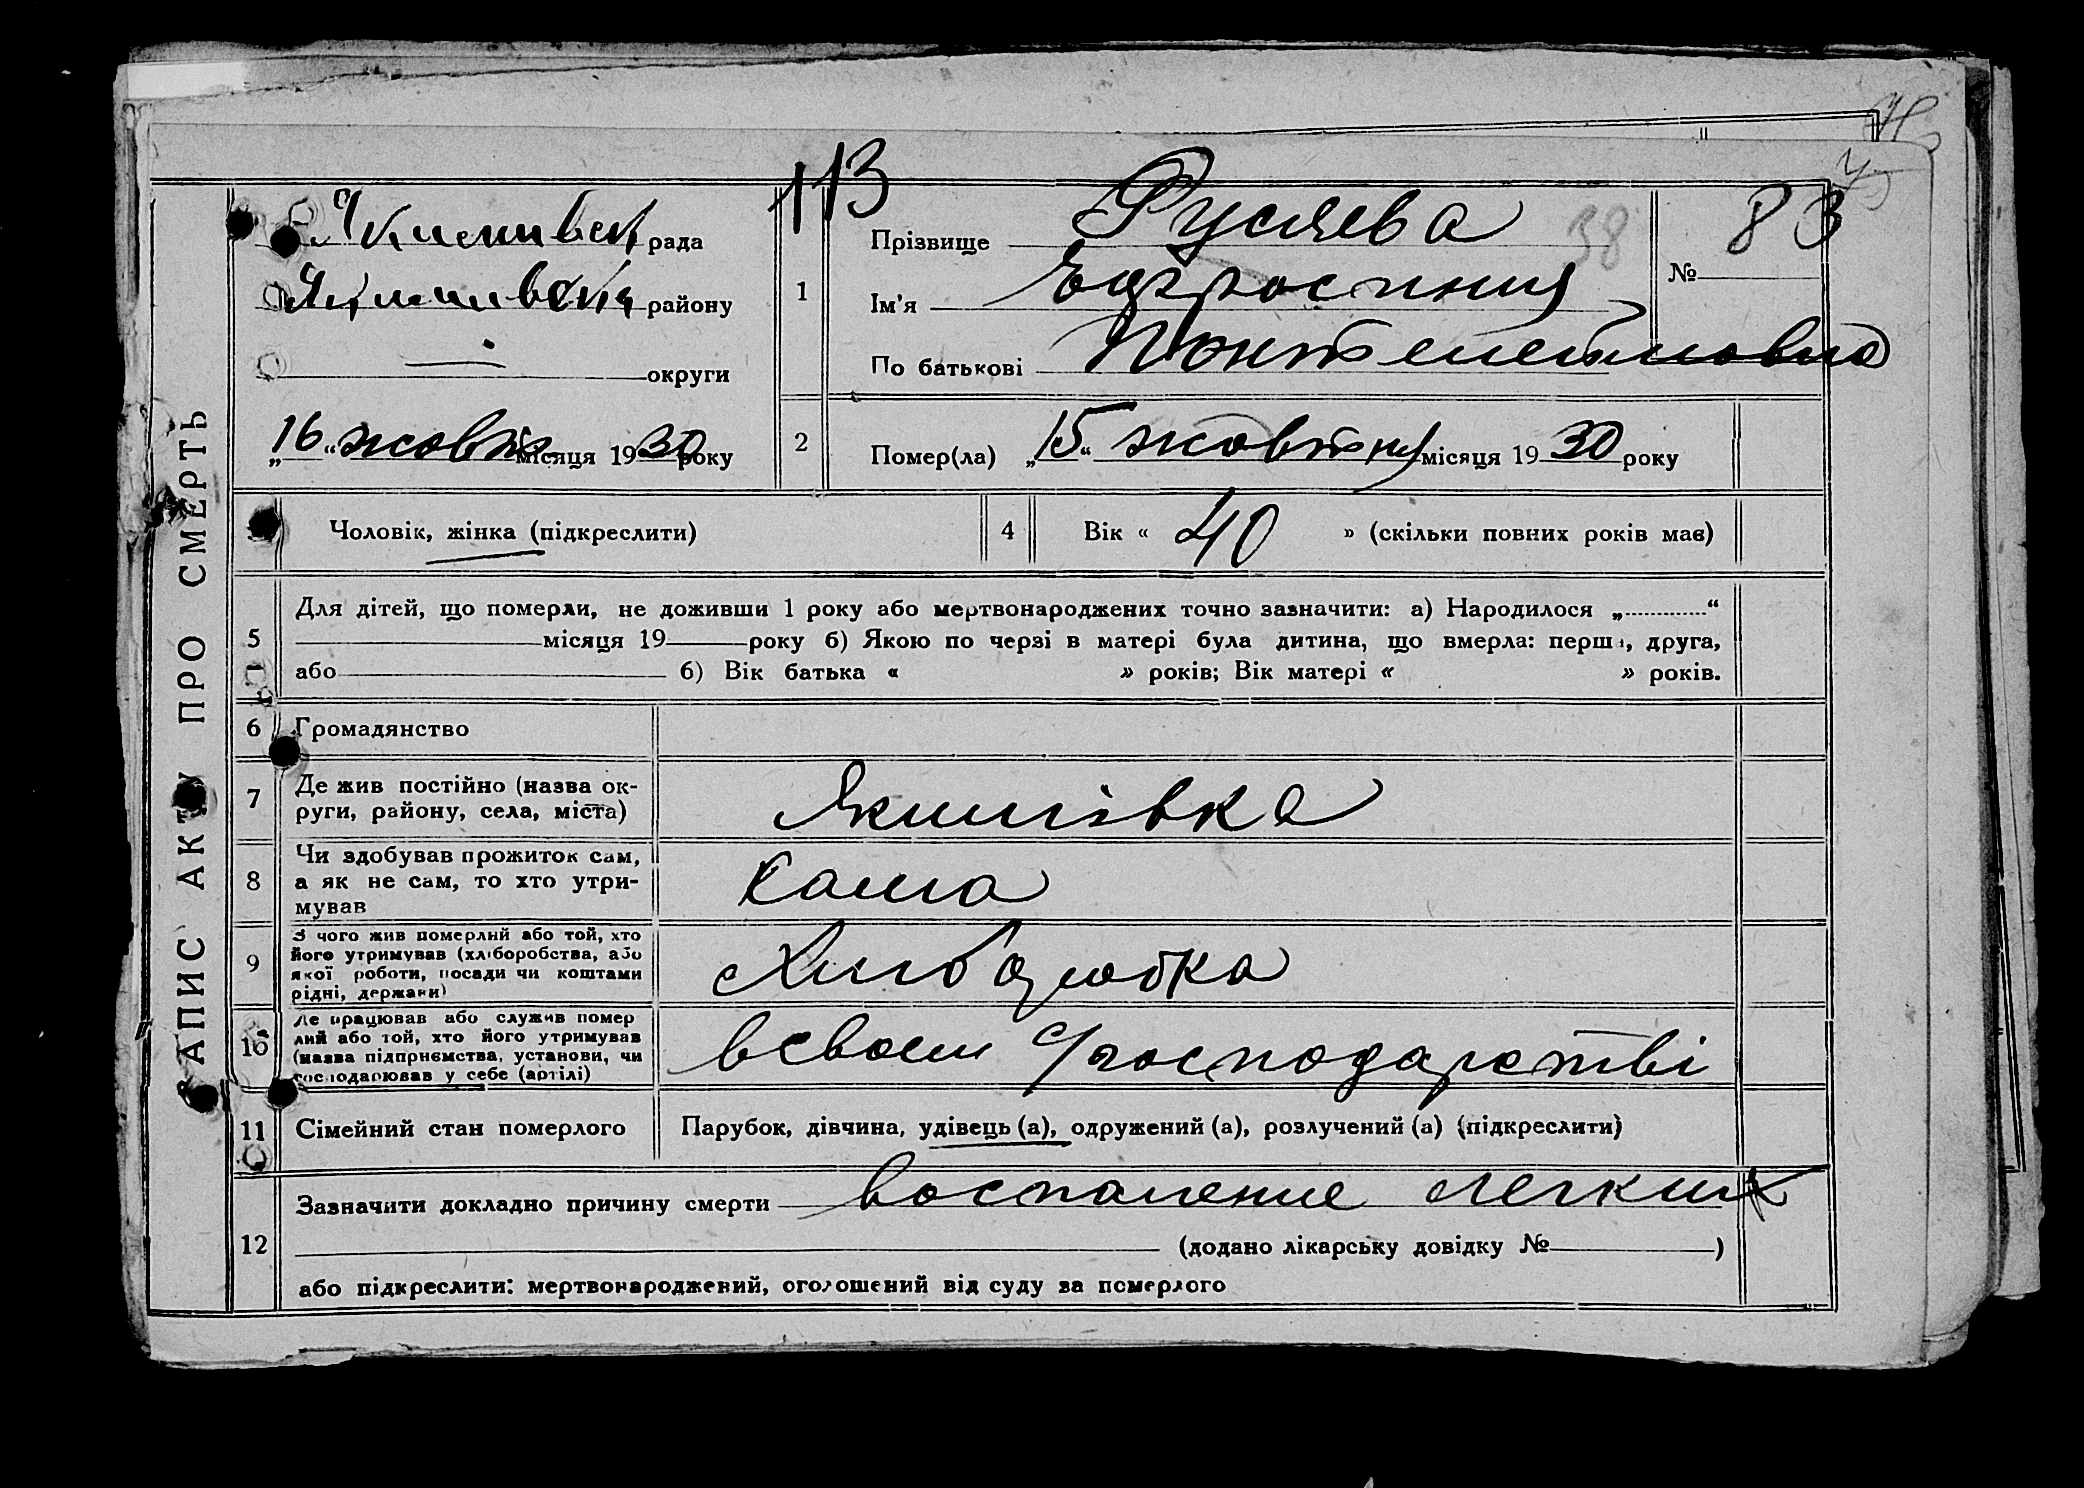 ЗАПИС АКТУ ПРО СМЕРТЬ
113
рада
району
округи
„16“ жовтн місяця 1930 року
1
Прізвище Русяева
38
№ 83
Ім'я
По батькові
2
Помер(ла) „15“ жовтня місяця 1930 року
Чоловік, жінка (підкреслити)
4
Вік « 40 » (скільки повних років мав)
5
Для дітей, що померли, не доживши 1 року або мертвонароджених точно зазначити: а) Народилося „ “
місяця 19 року б) Якою по черзі в матері була дитина, що вмерла: перша, друга,
або б) Вік батька « » років; Вік матері « » років.
6
Громадянство
7
Де жив постійно (назва ок-
руги, району, села, міста)
Якимівка
8
Чи здобував прожиток сам,
а як не сам, то хто утри-
мував
Сама
9
З чого жив померлий або той, хто
його утримував (хліборобства, або
якої роботи, посади чи коштами
рідні, держави)
10
Де працював або служив помер
лий або той, хто його утримував
(назва підприємства, установи, чи
господарював у себе (артілі)
в своем с/господарстві
11
Сімейний стан померлого
Парубок, дівчина, удівець (а), одружений (а), розлучений (а) (підкреслити)
12
Зазначити докладно причину смерти воспаление легких
(додано лікарську довідку № )
або підкреслити: мертвонароджений, оголошений від суду за померлого